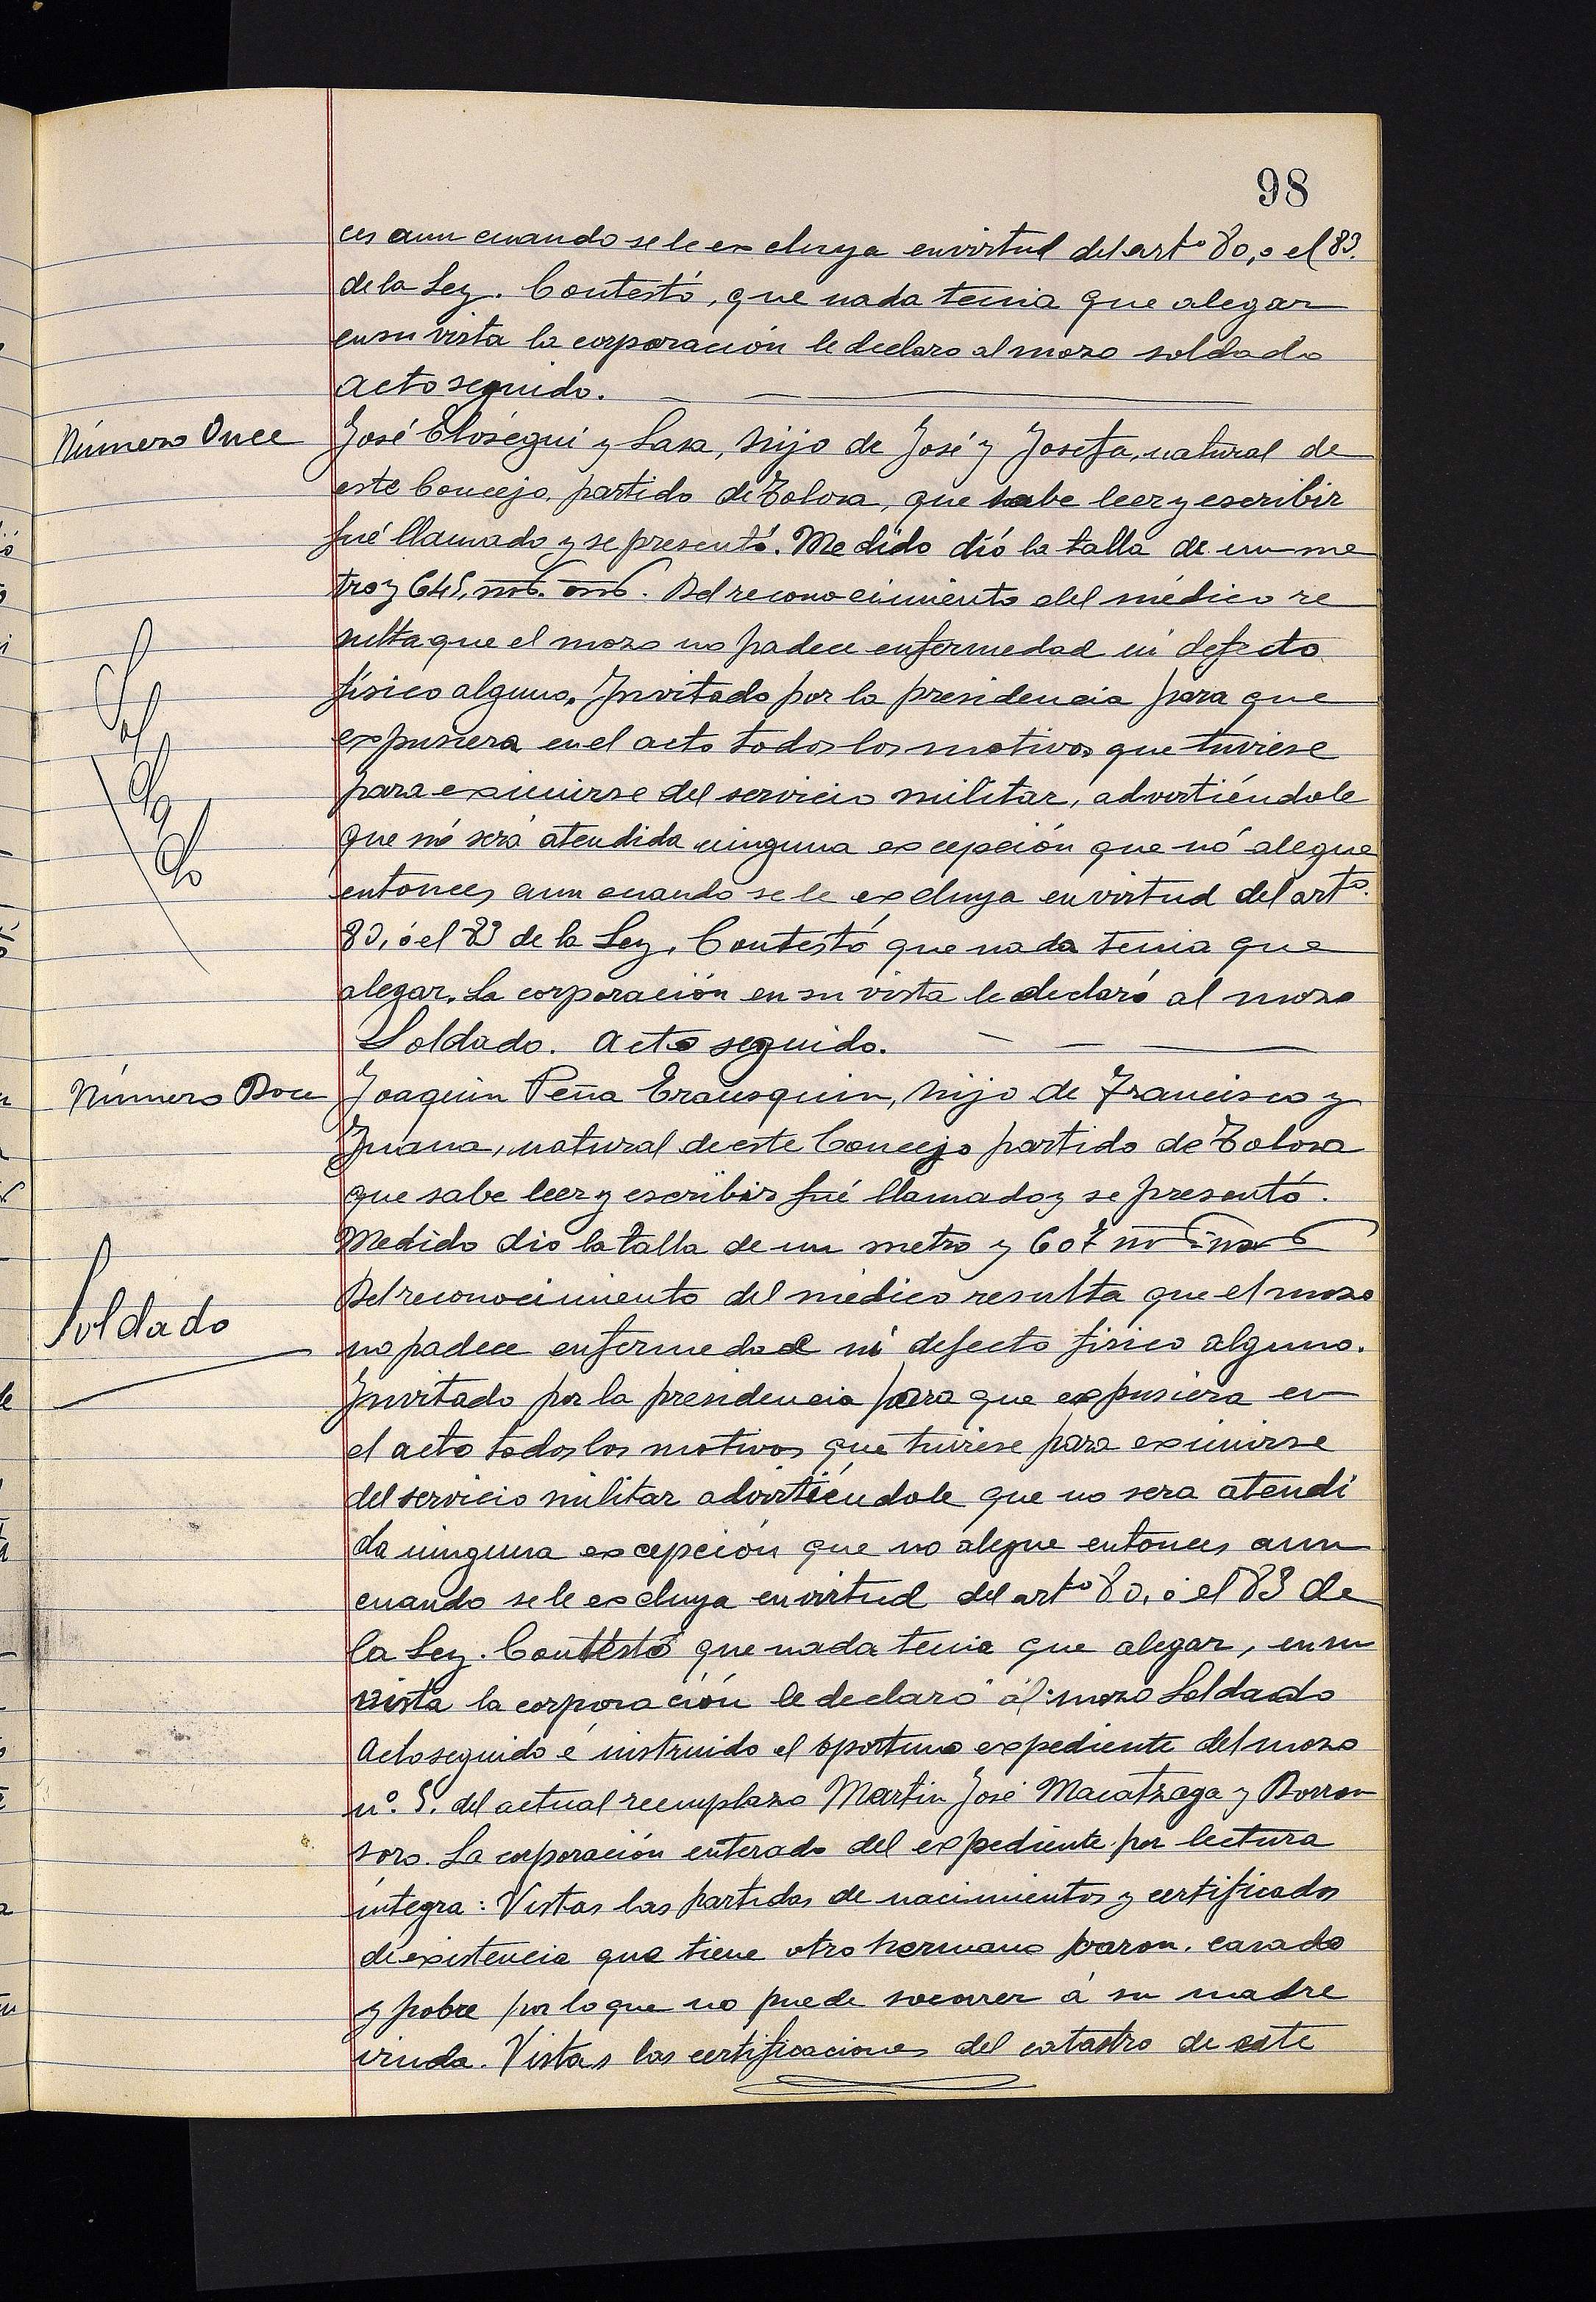 98
ces aun cuando se le excluya en virtud del artº 80, o el 83.
de la Ley. Contestó, que nada tenia que alegar
en su vista la corporación le declaro al mozo soldado
acto seguido.
Número Once
José Elósegui y Lasa, hijo de José y Josefa, natural de
este Concejo, partido de Tolosa, que sabe leer y escribir
fué llamado y se presentó. Medido dió la talla de un me
tro y 645,
Del reconocimiento del médico re
sulta que el mozo no padece enfermedad ni defecto
físico alguno. Invitado por la presidencia para que
expusiera en el acto todos los motivos que tuviese
para eximirse del servicio militar, advirtiéndole
que nó será atendida ninguna excepción que nó alegue
entonces, aun cuando se le excluya en virtud del artº.
80, ó el 83 de la Ley. Contestó que nada tenia que
alegar. La corporación en su vista le declaró al mozo
Soldado. Acto seguido.
Sol
da
do
Número Doce
Joaquin Peña Erausquin, hijo de Francisco y
Juana, natural de este Concejo partido de Tolosa
que sabe leer y escribir fué llamado y se presentó.
Medido dio la talla de un metro y 607
Del reconocimiento del médico resulta que el mozo
no padece enfermedad ni defecto fisico alguno.
Invitado por la presidencia para que expusiera en
el acto todos los motivos que tuviese para eximirse
del servicio militar advirtiéndole que no sera atendi
da ninguna excepción que no alegue entonces aun
cuando se le excluya en virtud del artº 80, ó el 83 de
la Ley. Contestó que nada tenia que alegar, en su
vista la corporación le declaró al mozo Soldado
Soldado
Acto seguido é instruido el oportuno expediente del mozo
nº. 5. del actual reemplazo Martin José Macatzaga y Borron
soro. La corporación enterado del expediente por lectura
íntegra: Vistas las partidas de nacimientos y certificados
de existencia que tiene otro hermano varon, casado
y pobre por lo que no puede socorrer á su madre
viuda. Vistas las certificaciones del catastro de este